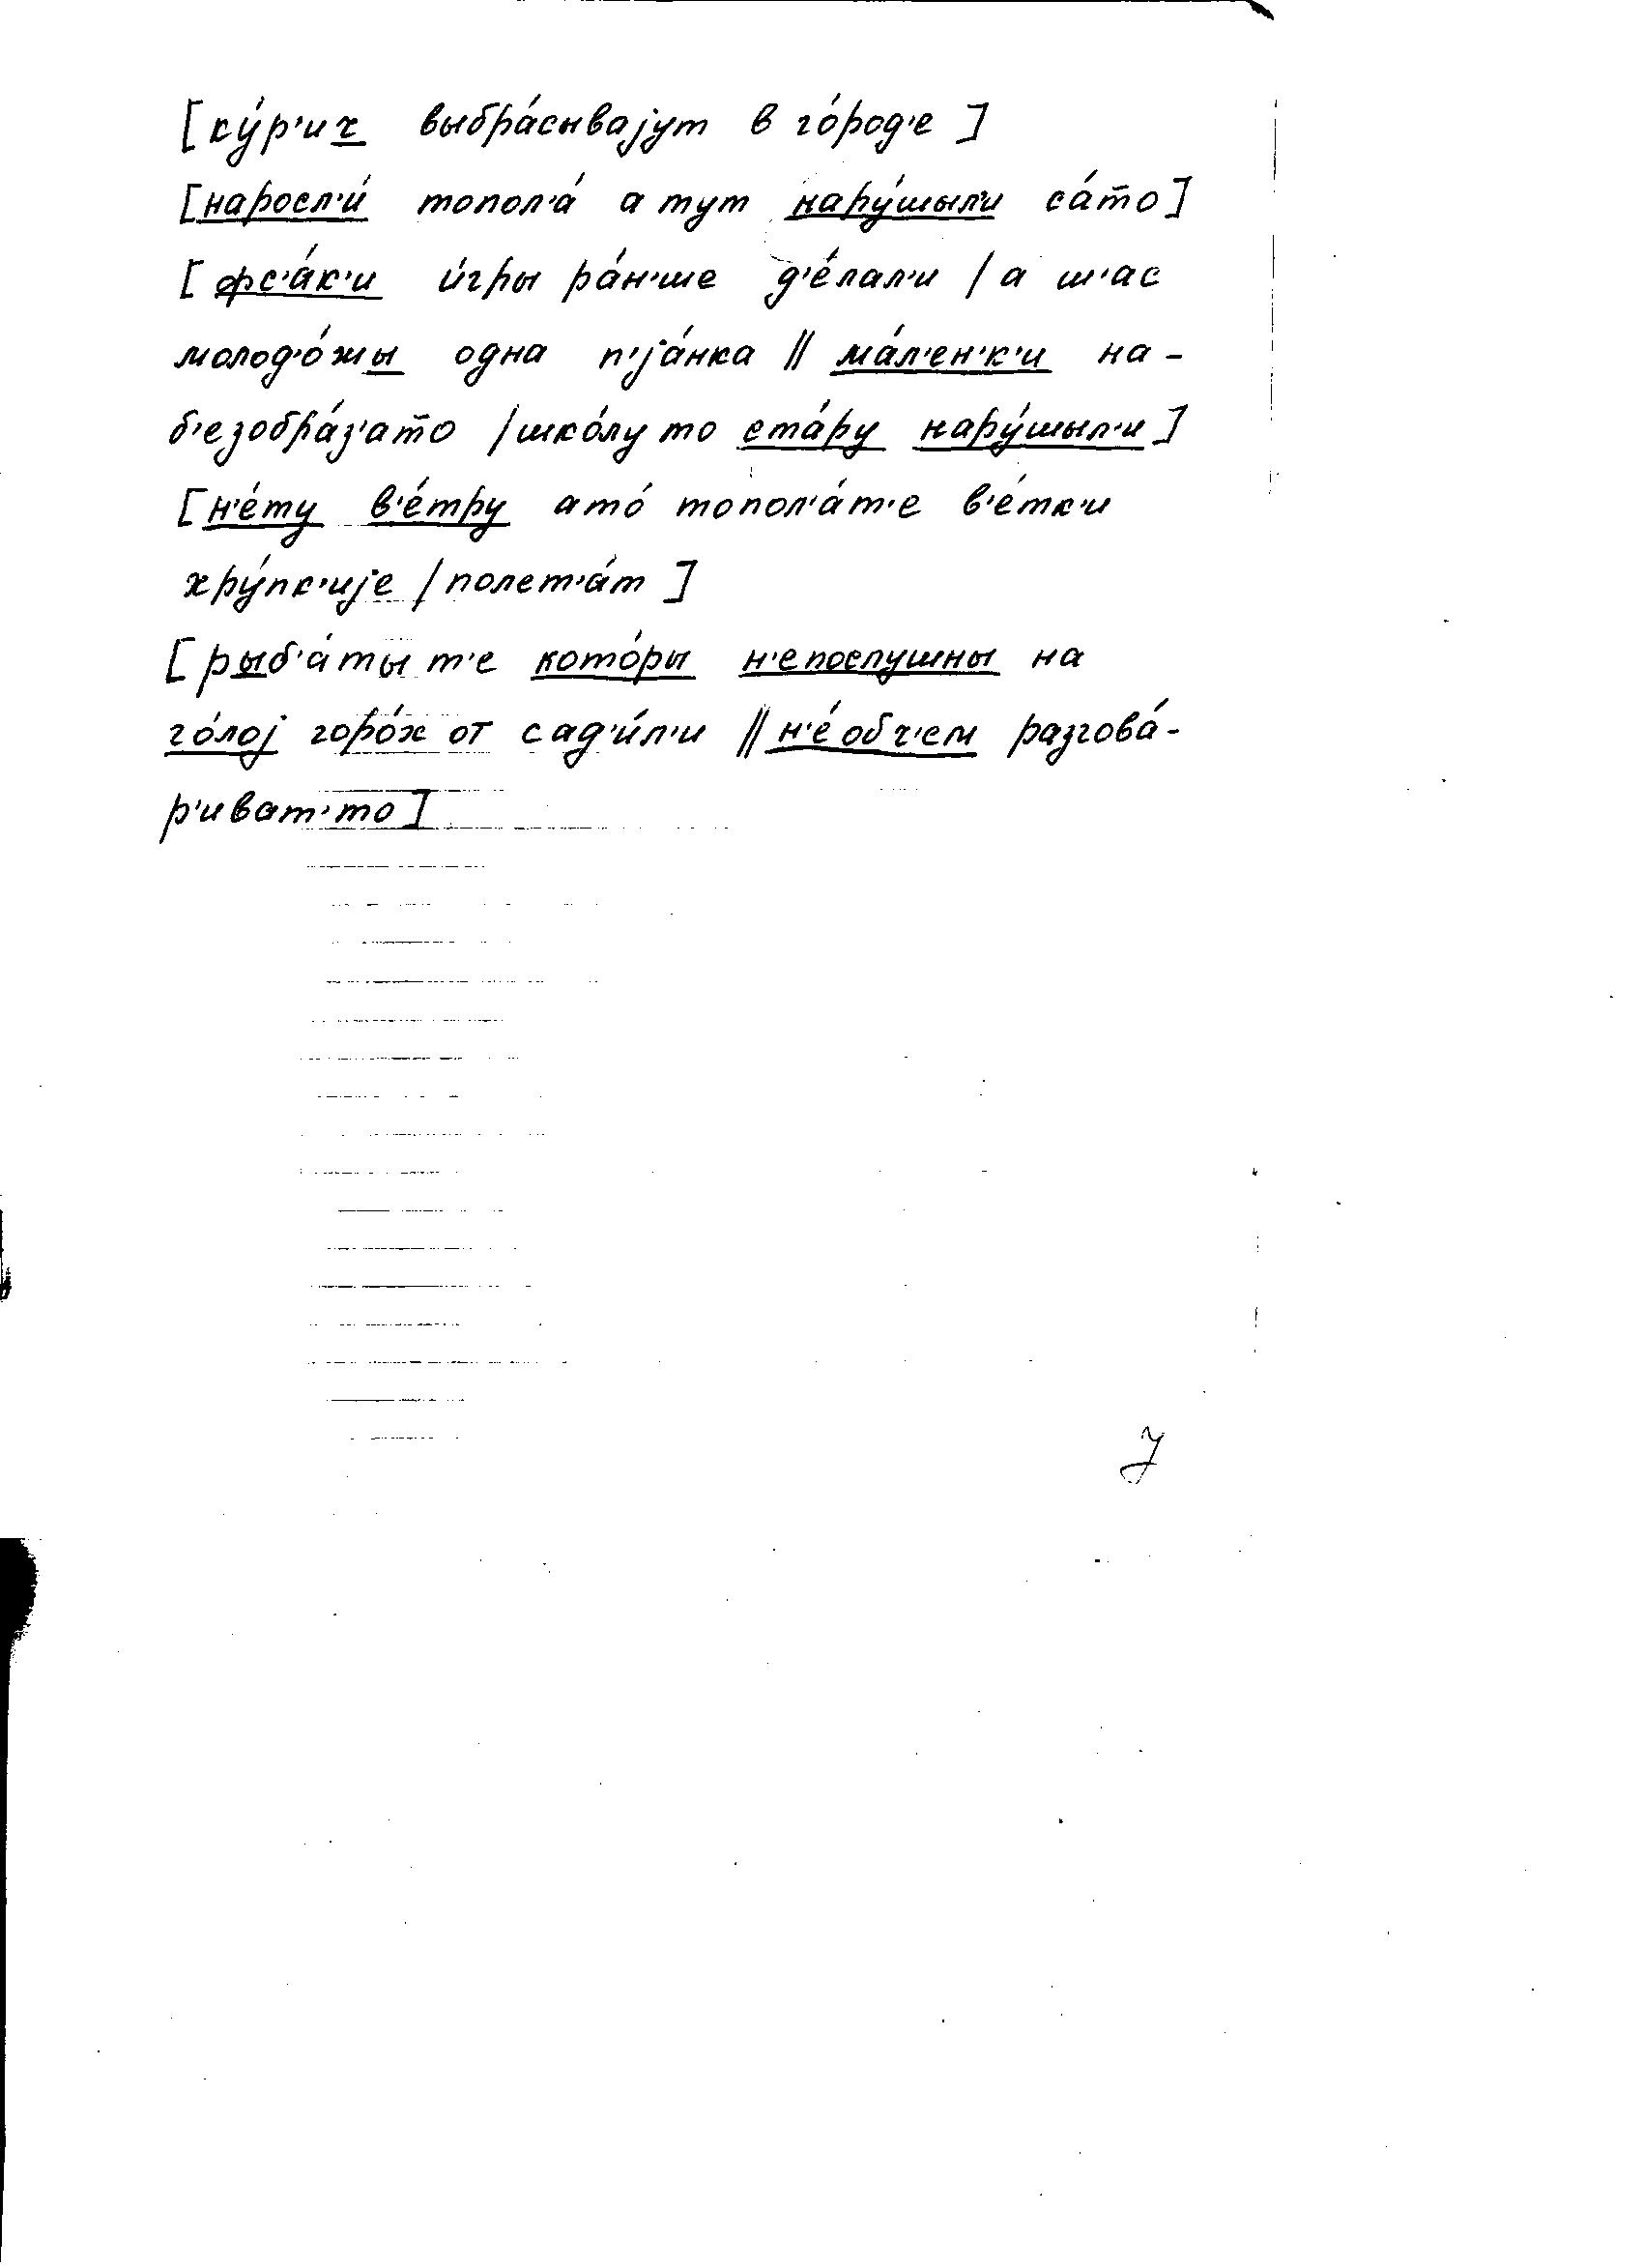 [ку́р'ич выбра́сывајут в го́род'е]
[наросл'и́ топол'а́ а тут нару́шыл'и са́т̄о]
[фс'а́к'и и́гры ра́н'ше д'е́лал'и / а ш'ас
молод'о́жы одна п'ја́нка // ма́л'ен'к'и на-
б'езобра́з'ат̄о / шко́лу то ста́ру нару́шыл'и]
[н'е́ту в'е́тру ато́ топол'а́т'е в'е́тк'и
хру́пк'ије / полет'а́т]
[рыб'а́ты т'е кото́ры н'епослушны на
го́лој горо́х от сад'и́л'и // н'е́ обч'ем разгова́-
р'иват'то]
7